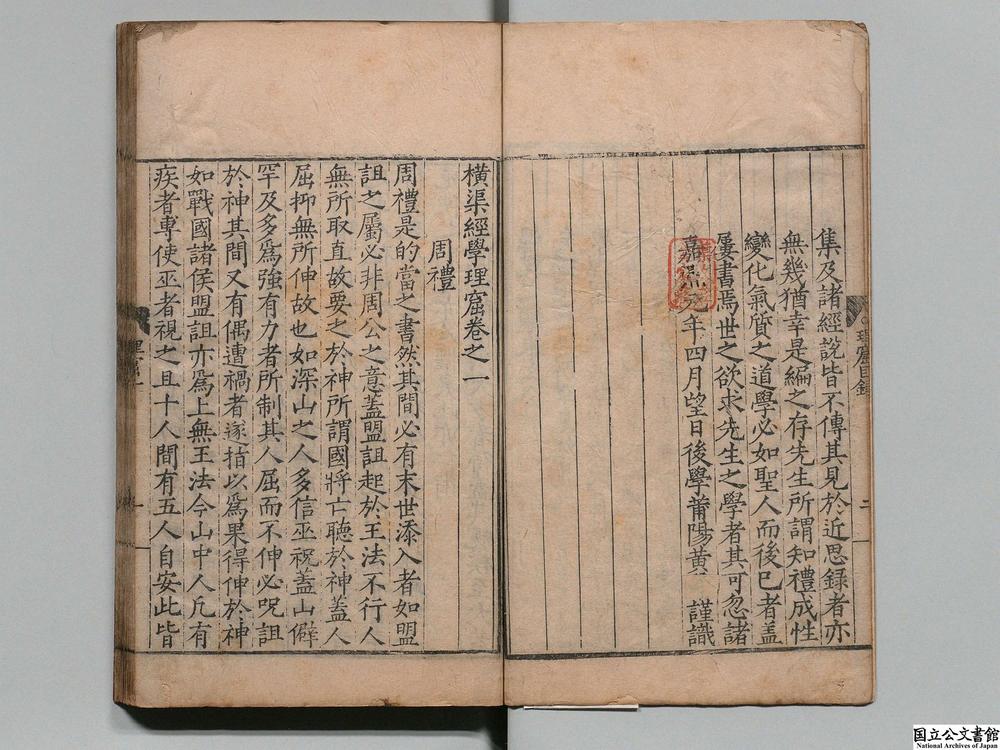 集及諸經說皆不傳其見於近思録者亦
無幾猶幸是編之存先生所謂知禮成性
變化氣質之道學必如聖人而後已者蓋
屢書焉世之欲求先生之學者其可忽諸
嘉熈元年四月望日後學莆陽黃 謹識
橫渠經學理窟卷之一
周禮
周禮是的當之書然其間必有末世添入者如盟
詛之屬必非周公之意蓋盟詛起於王法不行人
無所取直故要之於神所謂國將亡聽於神蓋人
屈抑無所伸故也如深山之人多信巫祝蓋山僻
罕及多爲強有力者所制其人屈而不伸必呪詛
於神其間又有偶遭禍者遂指以爲果得伸於神
如戰國諸侯盟詛亦爲上無王法今山中人凡有
疾者專使巫者視之且十人間有五人自安此皆
理窟目錄
二
理窟一
一
国立公文書館
National Archives of Japan